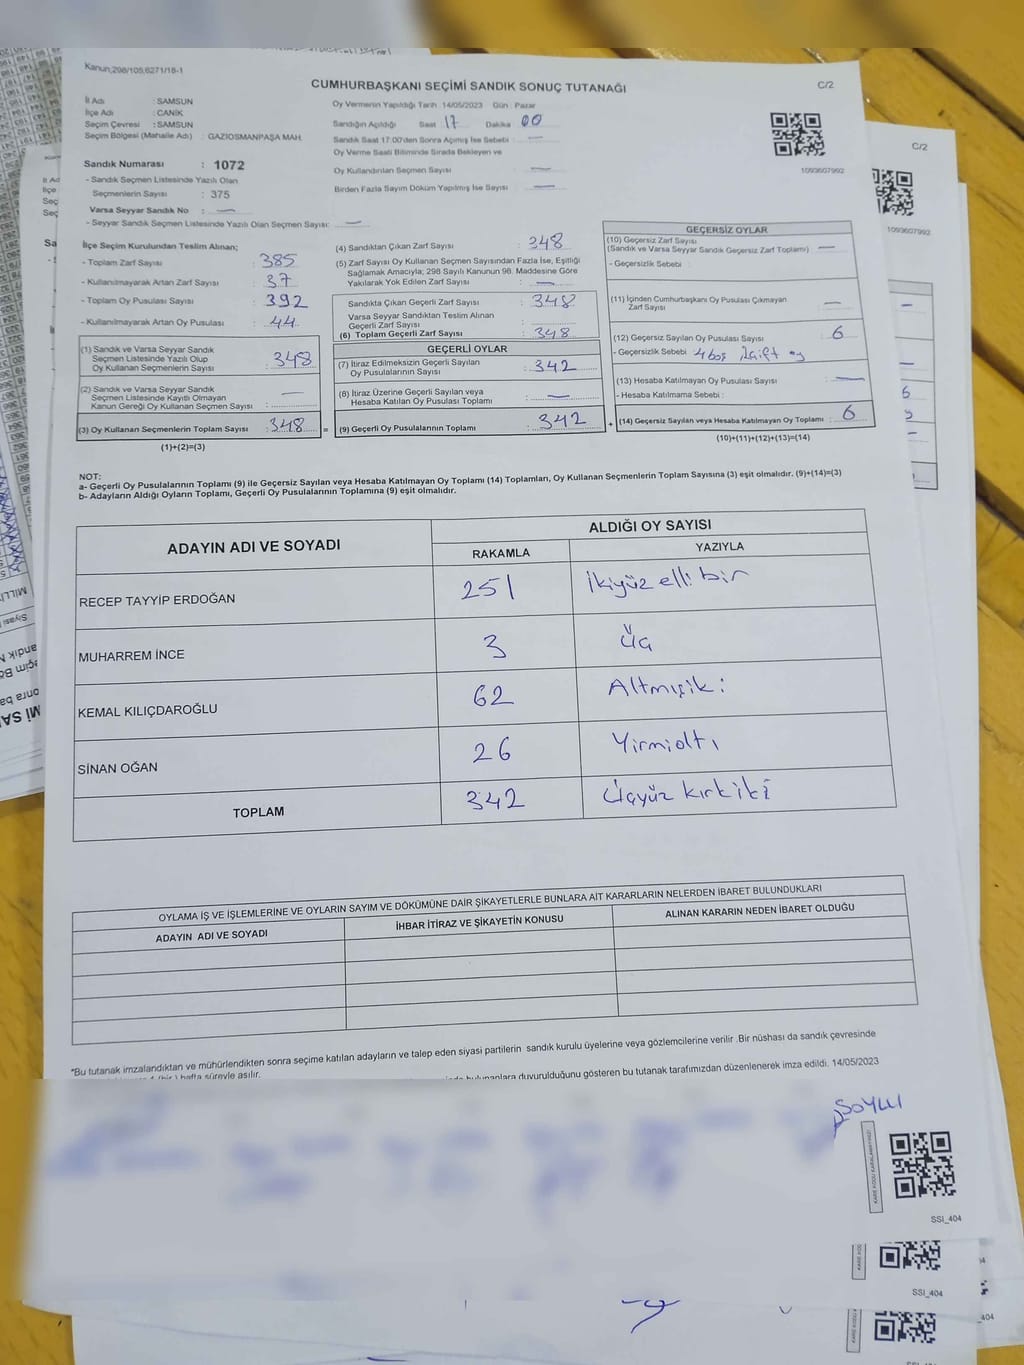 Kanun,298/105,6271/16-1
CUMHURBAŞKANI SEÇİMİ SANDIK SONUÇ TUTANAĞI
C/2
İl Adı : SAMSUN
İlçe Adı : CANİK
Seçim Çevresi : SAMSUN
Seçim Bölgesi (Mahalle Adı) : GAZIOSMANPAŞA MAH.
Sandık Numarası : 1072
- Sandık Seçmen Listesinde Yazılı Olan
Seçmenlerin Sayısı : 375
Varsa Seyyar Sandık No : —
- Seyyar Sandık Seçmen Listesinde Yazılı Olan Seçmen Sayısı: —
Oy Vermenin Yapıldığı Tarih 14/05/2023 Gün : Pazar
Sandığın Açıldığı Saat 17 Dakika 00
Sandık Saat 17:00'den Sonra Açılmış İse Sebebi : —
Oy Verme Saati Bitiminde Sırada Bekleyen ve
Oy Kullandırılan Seçmen Sayısı : —
Birden Fazla Sayım Döküm Yapılmış İse Sayısı : —
1093607992
İlçe Seçim Kurulundan Teslim Alınan;
- Toplam Zarf Sayısı : 385
- Kullanılmayarak Artan Zarf Sayısı : 37
- Toplam Oy Pusulası Sayısı : 392
- Kullanılmayarak Artan Oy Pusulası : 44
(1) Sandık ve Varsa Seyyar Sandık
Seçmen Listesinde Yazılı Olup
Oy Kullanan Seçmenlerin Sayısı : 348
(2) Sandık ve Varsa Seyyar Sandık
Seçmen Listesinde Kayıtlı Olmayan
Kanun Gereği Oy Kullanan Seçmen Sayısı : —
(3) Oy Kullanan Seçmenlerin Toplam Sayısı : 348 =
(1)+(2)=(3)
(4) Sandıktan Çıkan Zarf Sayısı : 348
(5) Zarf Sayısı Oy Kullanan Seçmen Sayısından Fazla İse, Eşitliği
Sağlamak Amacıyla; 298 Sayılı Kanunun 98. Maddesine Göre
Yakılarak Yok Edilen Zarf Sayısı : —
Sandıkta Çıkan Geçerli Zarf Sayısı : 348
Varsa Seyyar Sandıktan Teslim Alınan
Geçerli Zarf Sayısı : —
(6) Toplam Geçerli Zarf Sayısı : 348
GEÇERLİ OYLAR
(7) İtiraz Edilmeksizin Geçerli Sayılan
Oy Pusulalarının Sayısı : 342
(8) İtiraz Üzerine Geçerli Sayılan veya
Hesaba Katılan Oy Pusulası Toplamı : —
(9) Geçerli Oy Pusulalarının Toplamı : 342 +
GEÇERSİZ OYLAR
(10) Geçersiz Zarf Sayısı
(Sandık ve Varsa Seyyar Sandık Geçersiz Zarf Toplamı) : —
- Geçersizlik Sebebi :
(11) İçinden Cumhurbaşkanı Oy Pusulası Çıkmayan
Zarf Sayısı : —
(12) Geçersiz Sayılan Oy Pusulası Sayısı : 6
- Geçersizlik Sebebi : 4 boş 2 çift oy
(13) Hesaba Katılmayan Oy Pusulası Sayısı : —
- Hesaba Katılmama Sebebi :
(14) Geçersiz Sayılan veya Hesaba Katılmayan Oy Toplamı : 6
(10)+(11)+(12)+(13)=(14)
NOT:
a- Geçerli Oy Pusulalarının Toplamı (9) ile Geçersiz Sayılan veya Hesaba Katılmayan Oy Toplamı (14) Toplamları, Oy Kullanan Seçmenlerin Toplam Sayısına (3) eşit olmalıdır. (9)+(14)=(3)
b- Adayların Aldığı Oyların Toplamı, Geçerli Oy Pusulalarının Toplamına (9) eşit olmalıdır.
ADAYIN ADI VE SOYADI
ALDIĞI OY SAYISI
RAKAMLA YAZIYLA
RECEP TAYYİP ERDOĞAN 251 İkiyüz elli bir
MUHARREM İNCE 3 üç
KEMAL KILIÇDAROĞLU 62 Altmışiki
SİNAN OĞAN 26 Yirmialtı
TOPLAM 342 Üçyüz kırkiki
OYLAMA İŞ VE İŞLEMLERİNE VE OYLARIN SAYIM VE DÖKÜMÜNE DAİR ŞİKAYETLERLE BUNLARA AİT KARARLARIN NELERDEN İBARET BULUNDUKLARI
ADAYIN ADI VE SOYADI İHBAR İTİRAZ VE ŞİKAYETİN KONUSU ALINAN KARARIN NEDEN İBARET OLDUĞU
*Bu tutanak imzalandıktan ve mühürlendikten sonra seçime katılan adayların ve talep eden siyasi partilerin sandık kurulu üyelerine veya gözlemcilerine verilir .Bir nüshası da sandık çevresinde
(bir) hafta süreyle asılır.
bulunanlara duyurulduğunu gösteren bu tutanak tarafımızdan düzenlenerek imza edildi. 14/05/2023
SOYLU
SSI_404
SSI_404
C/2
1093607992